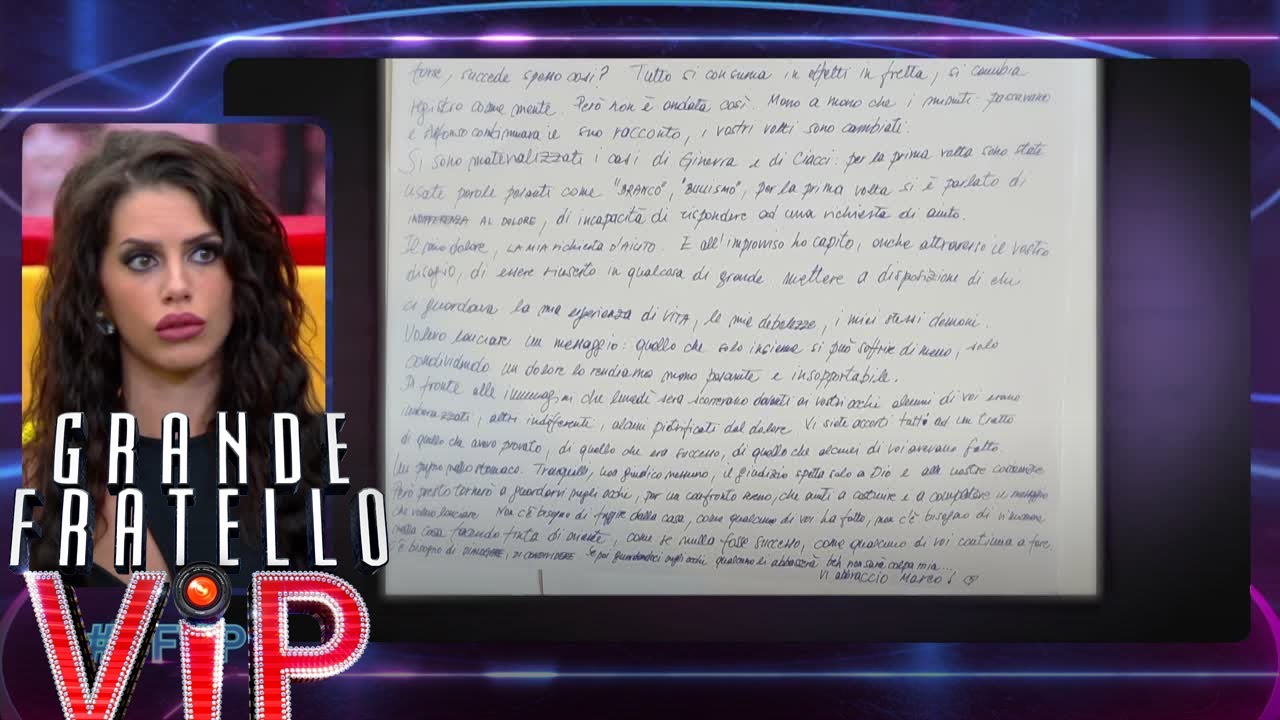 forse, succede spesso così? Tutto si consuma in effetti in fretta, si cambia
registro come niente. Però non è andata così. Mano a mano che i minuti passavano
e Alfonso continuava il suo racconto, i vostri volti sono cambiati.
Si sono materializzati i casi di Ginevra e di Ciacci: per la prima volta sono state
usate parole pesanti come "BRANCO", "BULLISMO", per la prima volta si è parlato di
INDIFFERENZA AL DOLORE, di incapacità di rispondere ad una richiesta di aiuto.
Il mio dolore, LA MIA RICHIESTA D'AIUTO. E all'improvviso ho capito, anche attraverso il vostro
disagio, di essere riuscito in qualcosa di grande mettere a disposizione di chi
ci guardava la mia esperienza di VITA, le mie debolezze, i miei stessi demoni.
Volevo lanciare un messaggio: quello che solo insieme si può soffrire di meno, solo
condividendo un dolore lo rendiamo meno pesante e insopportabile.
Di fronte alle immagini che lunedì sera scorrevano davanti ai vostri occhi alcuni di voi erano
imbarazzati, altri indifferenti, alcuni pietrificati dal dolore. Vi siete accorti tutti ad un tratto
di quello che avevo provato, di quello che era successo, di quello che alcuni di voi avevano fatto.
Un pugno nello stomaco. Tranquilli, non giudico nessuno, il giudizio spetta solo a Dio e alle nostre coscienze
Però presto tornerò a guardarvi negli occhi, per un confronto sereno, che aiuti a costruire e a completare il messaggio
che volevo lanciare. Non c'è bisogno di fuggire dalla casa, come qualcuno di voi ha fatto, non c'è bisogno di rimanere
nella casa facendo finta di niente, come se nulla fosse successo, come qualcuno di voi continua a fare
C'è bisogno di DIMOSTRARE, DI CONDIVIDERE. Se poi guardandoci negli occhi qualcuno li abbasserà beh non sarà colpa mia...
Vi abbraccio Marco!
GRANDE
FRATELLO
ViP